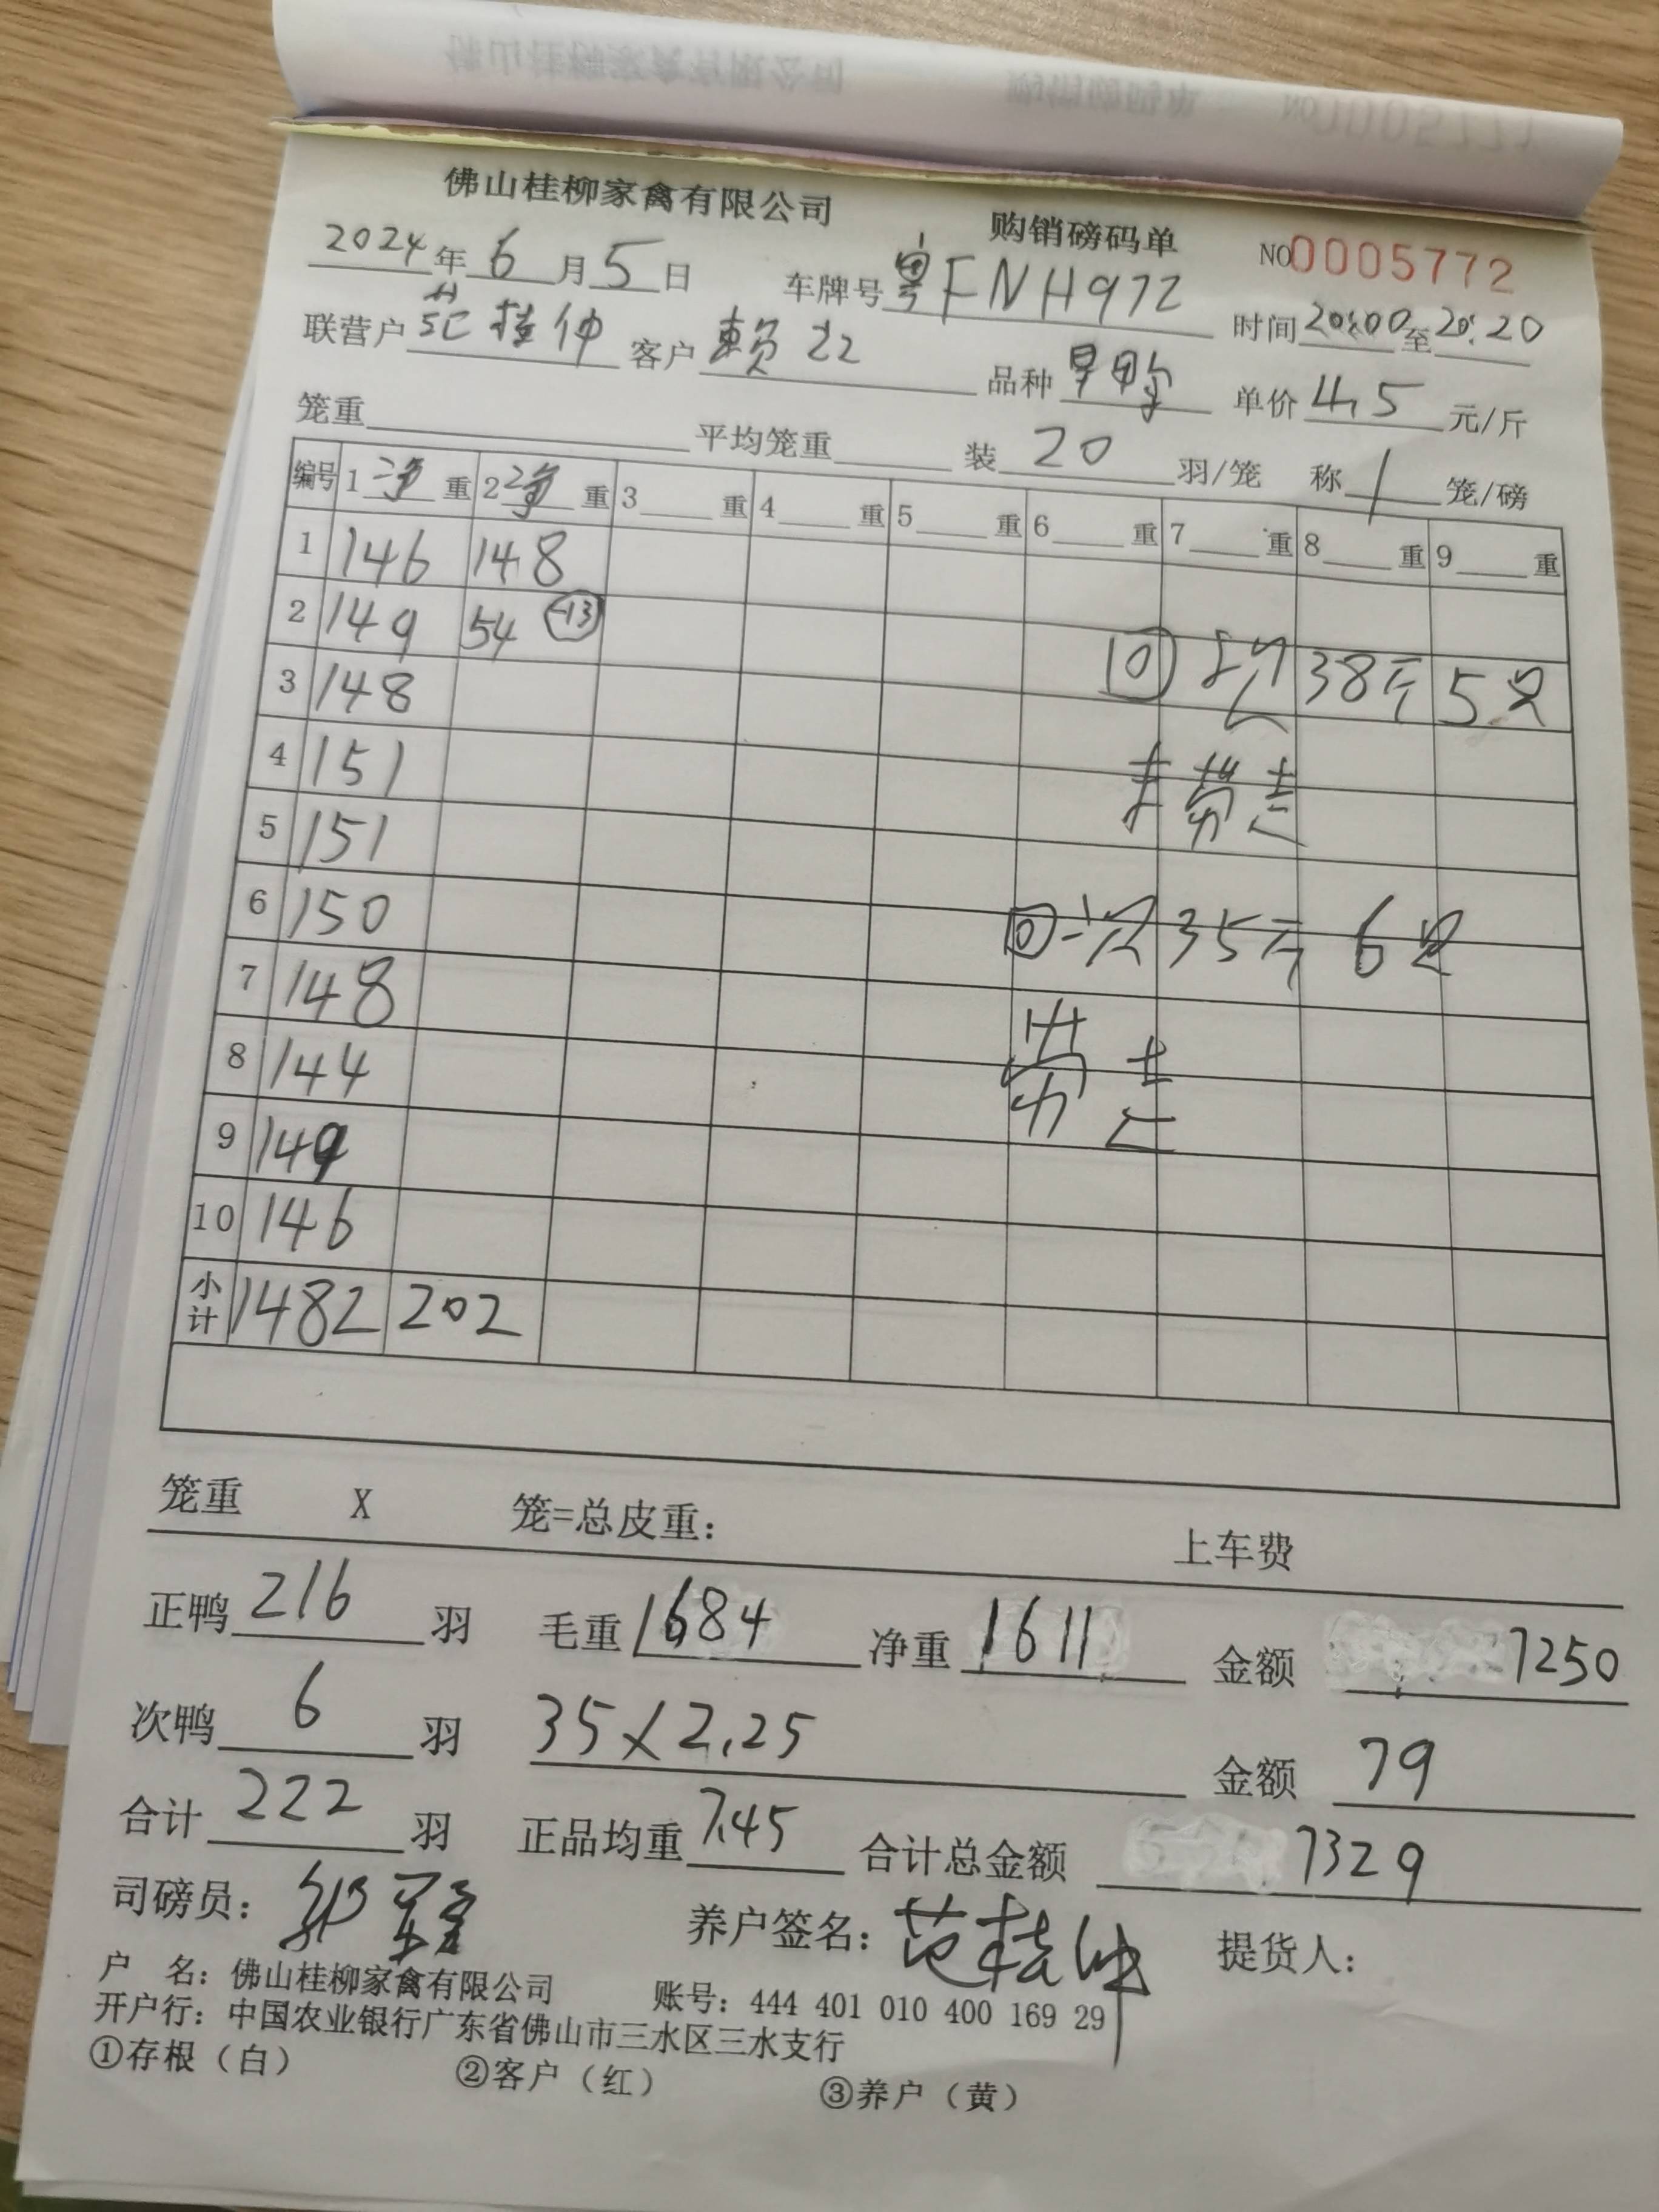 佛山桂柳家禽有限公司 购销磅码单 NO0005772
2024年6月5日 车牌号粤FNH972 时间20:00至20:20
联营户范桂仲 客户赖 品种旱鸭 单价4.5元/斤
笼重 平均笼重 装20羽/笼 称1笼/磅
编号 1净重 2净重 3重 4重 5重 6重 7重 8重 9重
1 146 148
2 149 54 -13
3 148 38斤 5只
4 151 未劳走
5 151
6 150 次35斤 6只
7 148
8 144 劳走
9 149
10 146
小计 1482 202
笼重 X 笼=总皮重: 上车费
正鸭216羽 毛重1684 净重1611 金额7250
次鸭6羽 35×2.25 金额79
合计222羽 正品均重7.45 合计总金额7329
司磅员: 养户签名:范桂仲 提货人:
户 名:佛山桂柳家禽有限公司 账号:444 401 010 400 169 29
开户行:中国农业银行广东省佛山市三水区三水支行
①存根(白) ②客户(红) ③养户(黄)